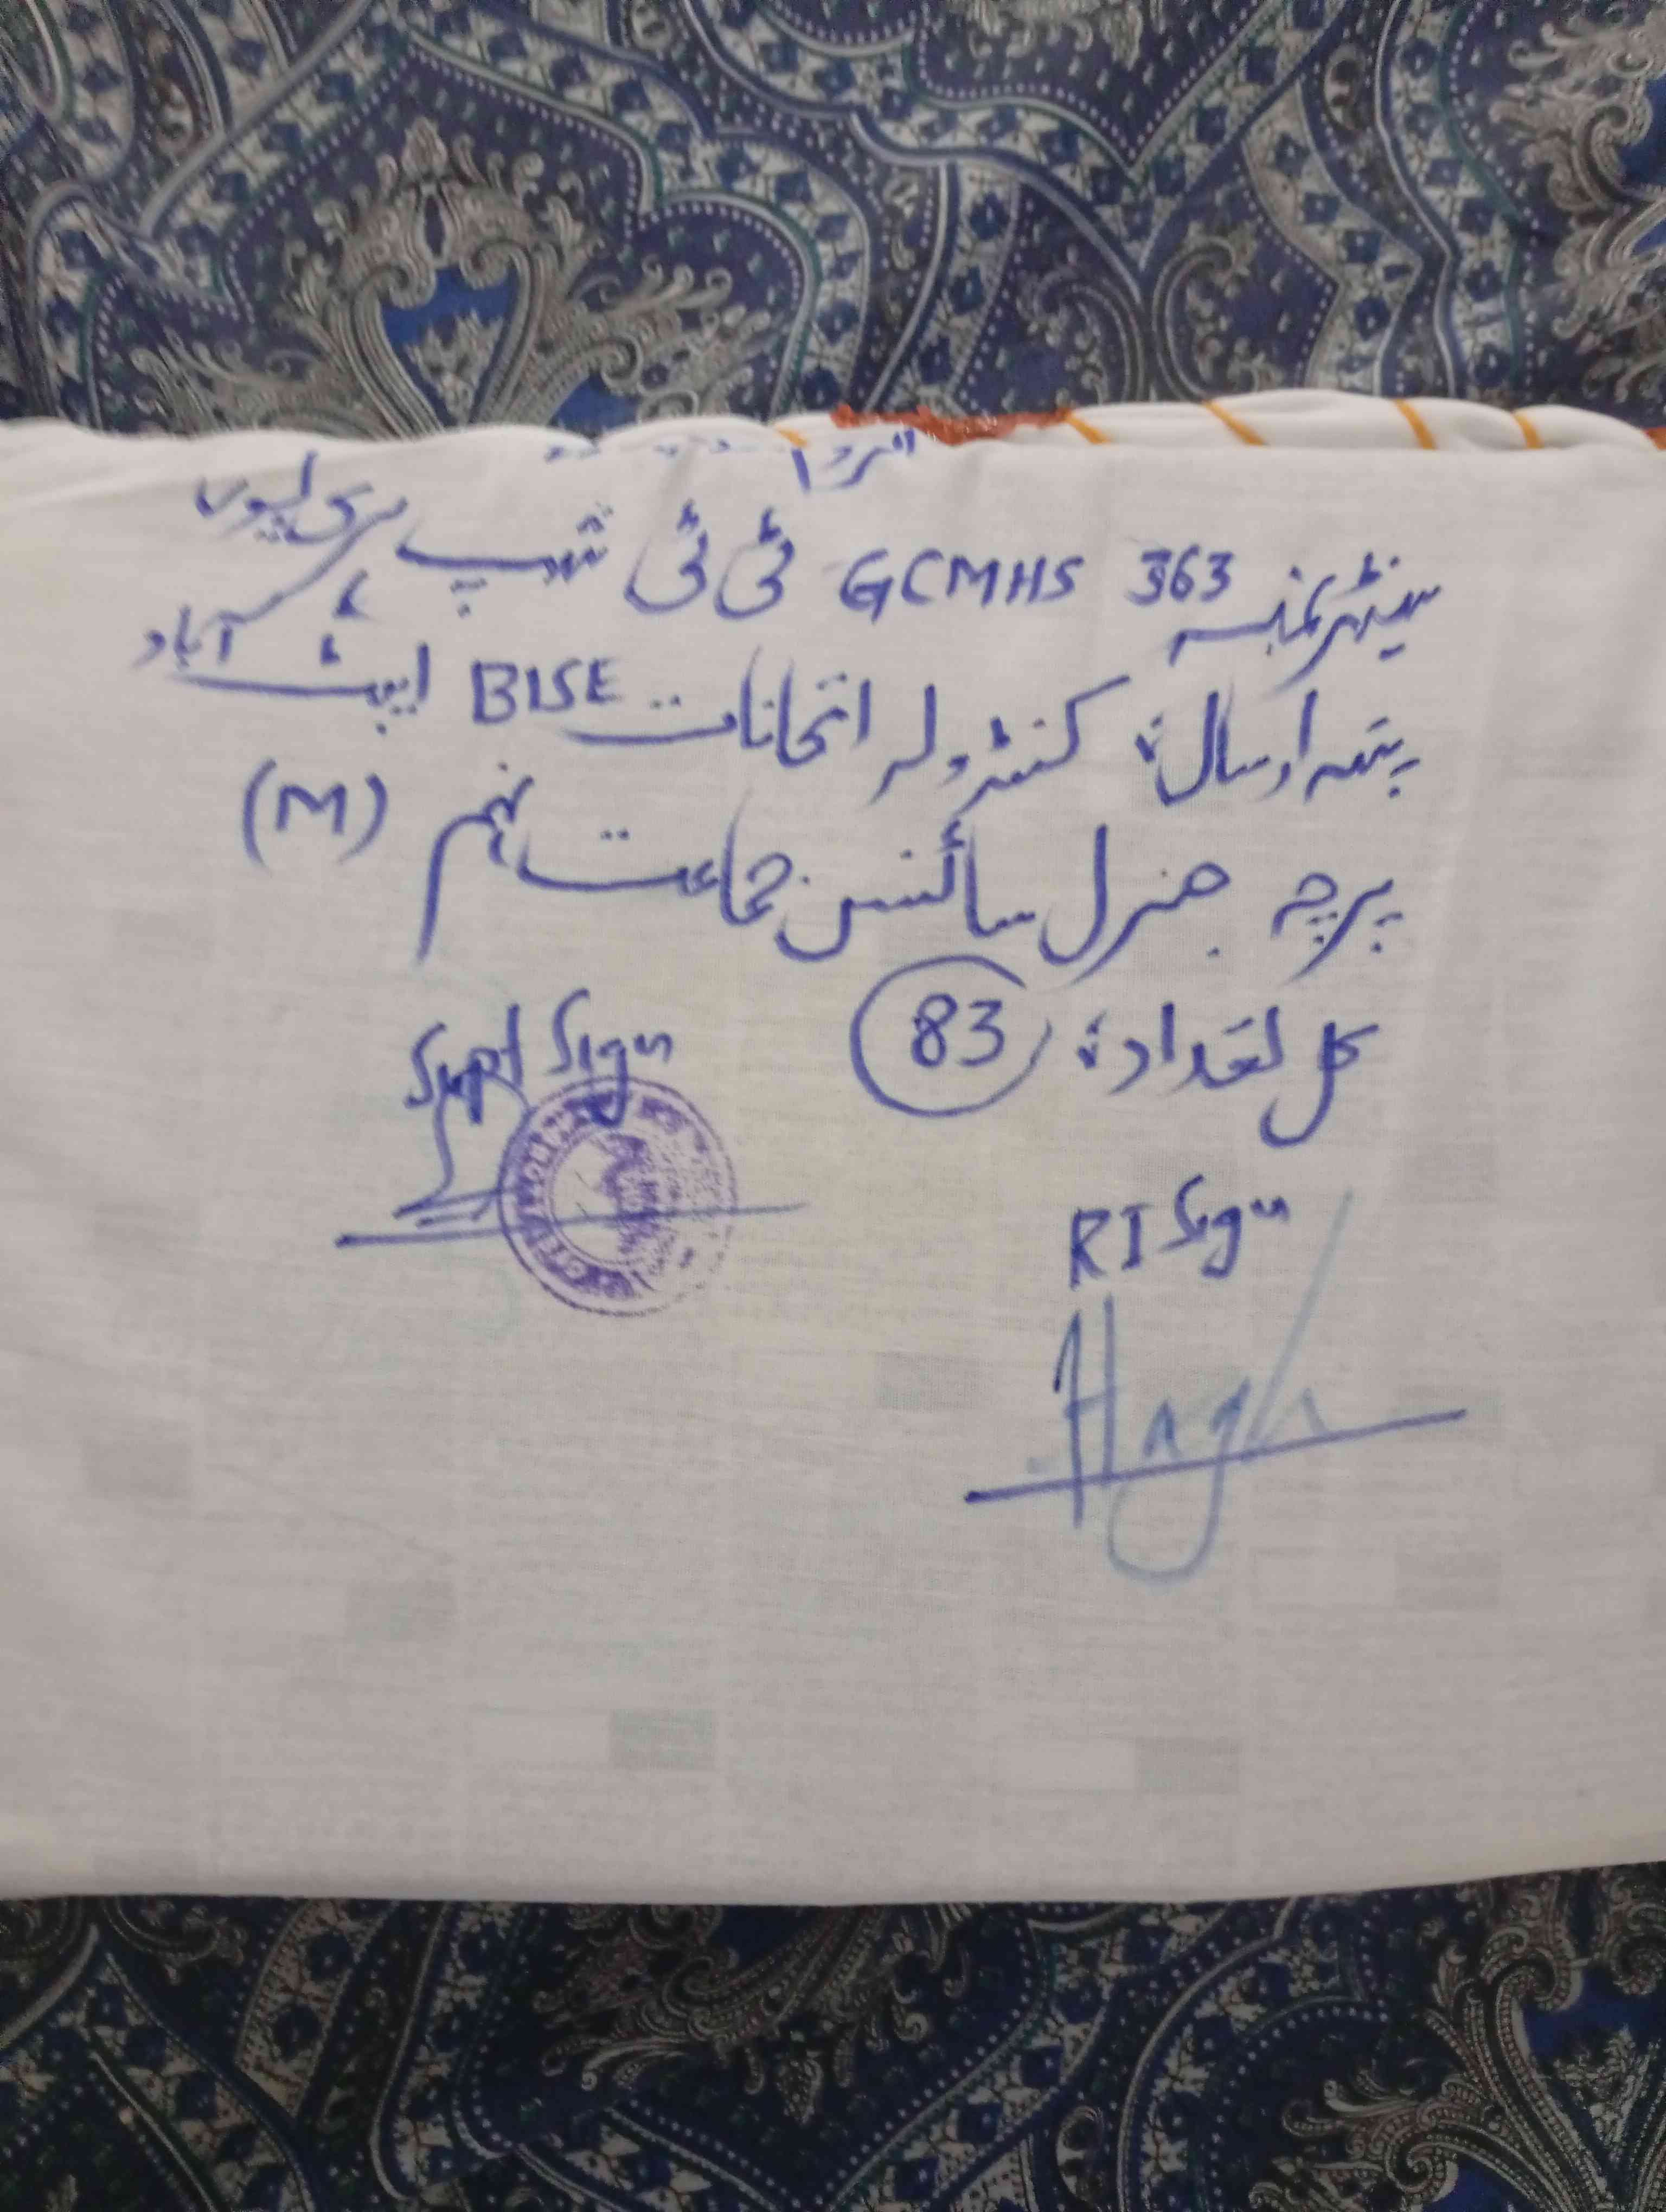 سینٹر نمبر 363 GCMHS ٹی ٹی شپ ہری پور
پتہ ارسال: کنٹرولر امتحانات BISE ایبٹ آباد
پرچہ جنرل سائنس جماعت نہم (M)
کل تعداد: 83
Supt Sign
RI Sign